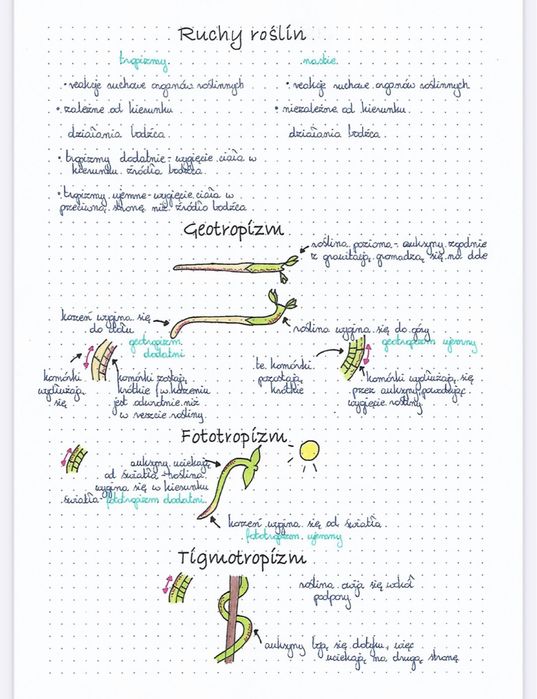 Ruchy roślin
tropizmy
• reakcje ruchowe organów roślinnych
• zależne od kierunku
działania bodźca
• tropizmy dodatnie - wygięcie ciała w
kierunku źródła bodźca
• tropizmy ujemne - wygięcie ciała w
przeciwną stronę niż źródło bodźca
nastie
• reakcje ruchowe organów roślinnych
• niezależne od kierunku
działania bodźca
Geotropizm
roślina pozioma - auksyny zgodnie
z grawitacją gromadzą się na dole
korzeń wygina się
do dołu
geotropizm
dodatni
roślina wygina się do góry
geotropizm ujemny
komórki
wydłużają
się
komórki zostają
krótkie (w korzeniu
jest odwrotnie niż
w reszcie rośliny
te komórki
pozostają
krótkie
komórki wydłużają się
przez auksyny powodując
wygięcie rośliny
Fototropizm
auksyny uciekają
od światła - roślina
wygina się w kierunku
światła - fototropizm dodatni
korzeń wygina się od światła
fototropizm ujemny
Tigmotropizm
roślina owija się wokół
podpory
auksyny boją się dotyku, więc
uciekają na drugą stronę